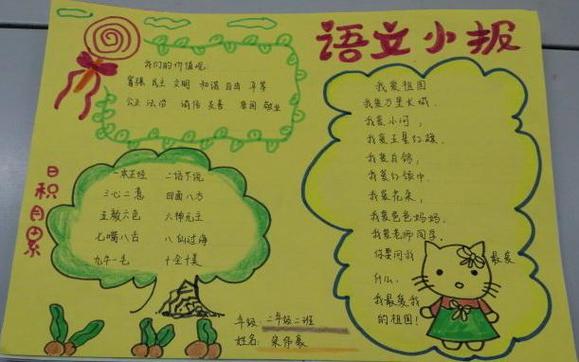 语文小报
我们的价值观
富强 民主 文明 和谐 自由 平等
公正 法治 诚信 友善 爱国 敬业
日积月累
一本正经 二话不说
三心二意 四面八方
五颜六色 六神无主
七嘴八舌 八仙过海
九牛一毛 十全十美
我爱祖国
我爱万里长城,
我爱小河,
我爱五星红旗,
我爱白鸽,
我爱红领巾
我爱花朵,
我爱爸爸妈妈,
我爱老师同学,
你要问我 最爱
什么,
我最爱我
的祖国!
年级:二年级二班
姓名: